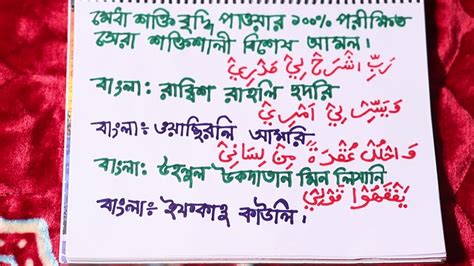 মেধা শক্তি বৃদ্ধি পাওয়ার ১০০% পরীক্ষিত
সেরা শক্তিশালী বিশেষ আমল।
رَبِّ اشْرَحْ لِيْ صَدْرِيْ
বাংলা: রাব্বিশ রাহলি ছদরি
وَيَسِّرْ لِيْ اَمْرِيْ
বাংলা: ওয়াচ্ছিরলি আমরি
وَاحْلُلْ عُقْدَةً مِّنْ لِّسَانِيْ
বাংলা: উহলুল উকদাতান মিন লিসানি
يَفْقَهُوْا قَوْلِيْ
বাংলা: ইয়াফকাহু কাউলি।